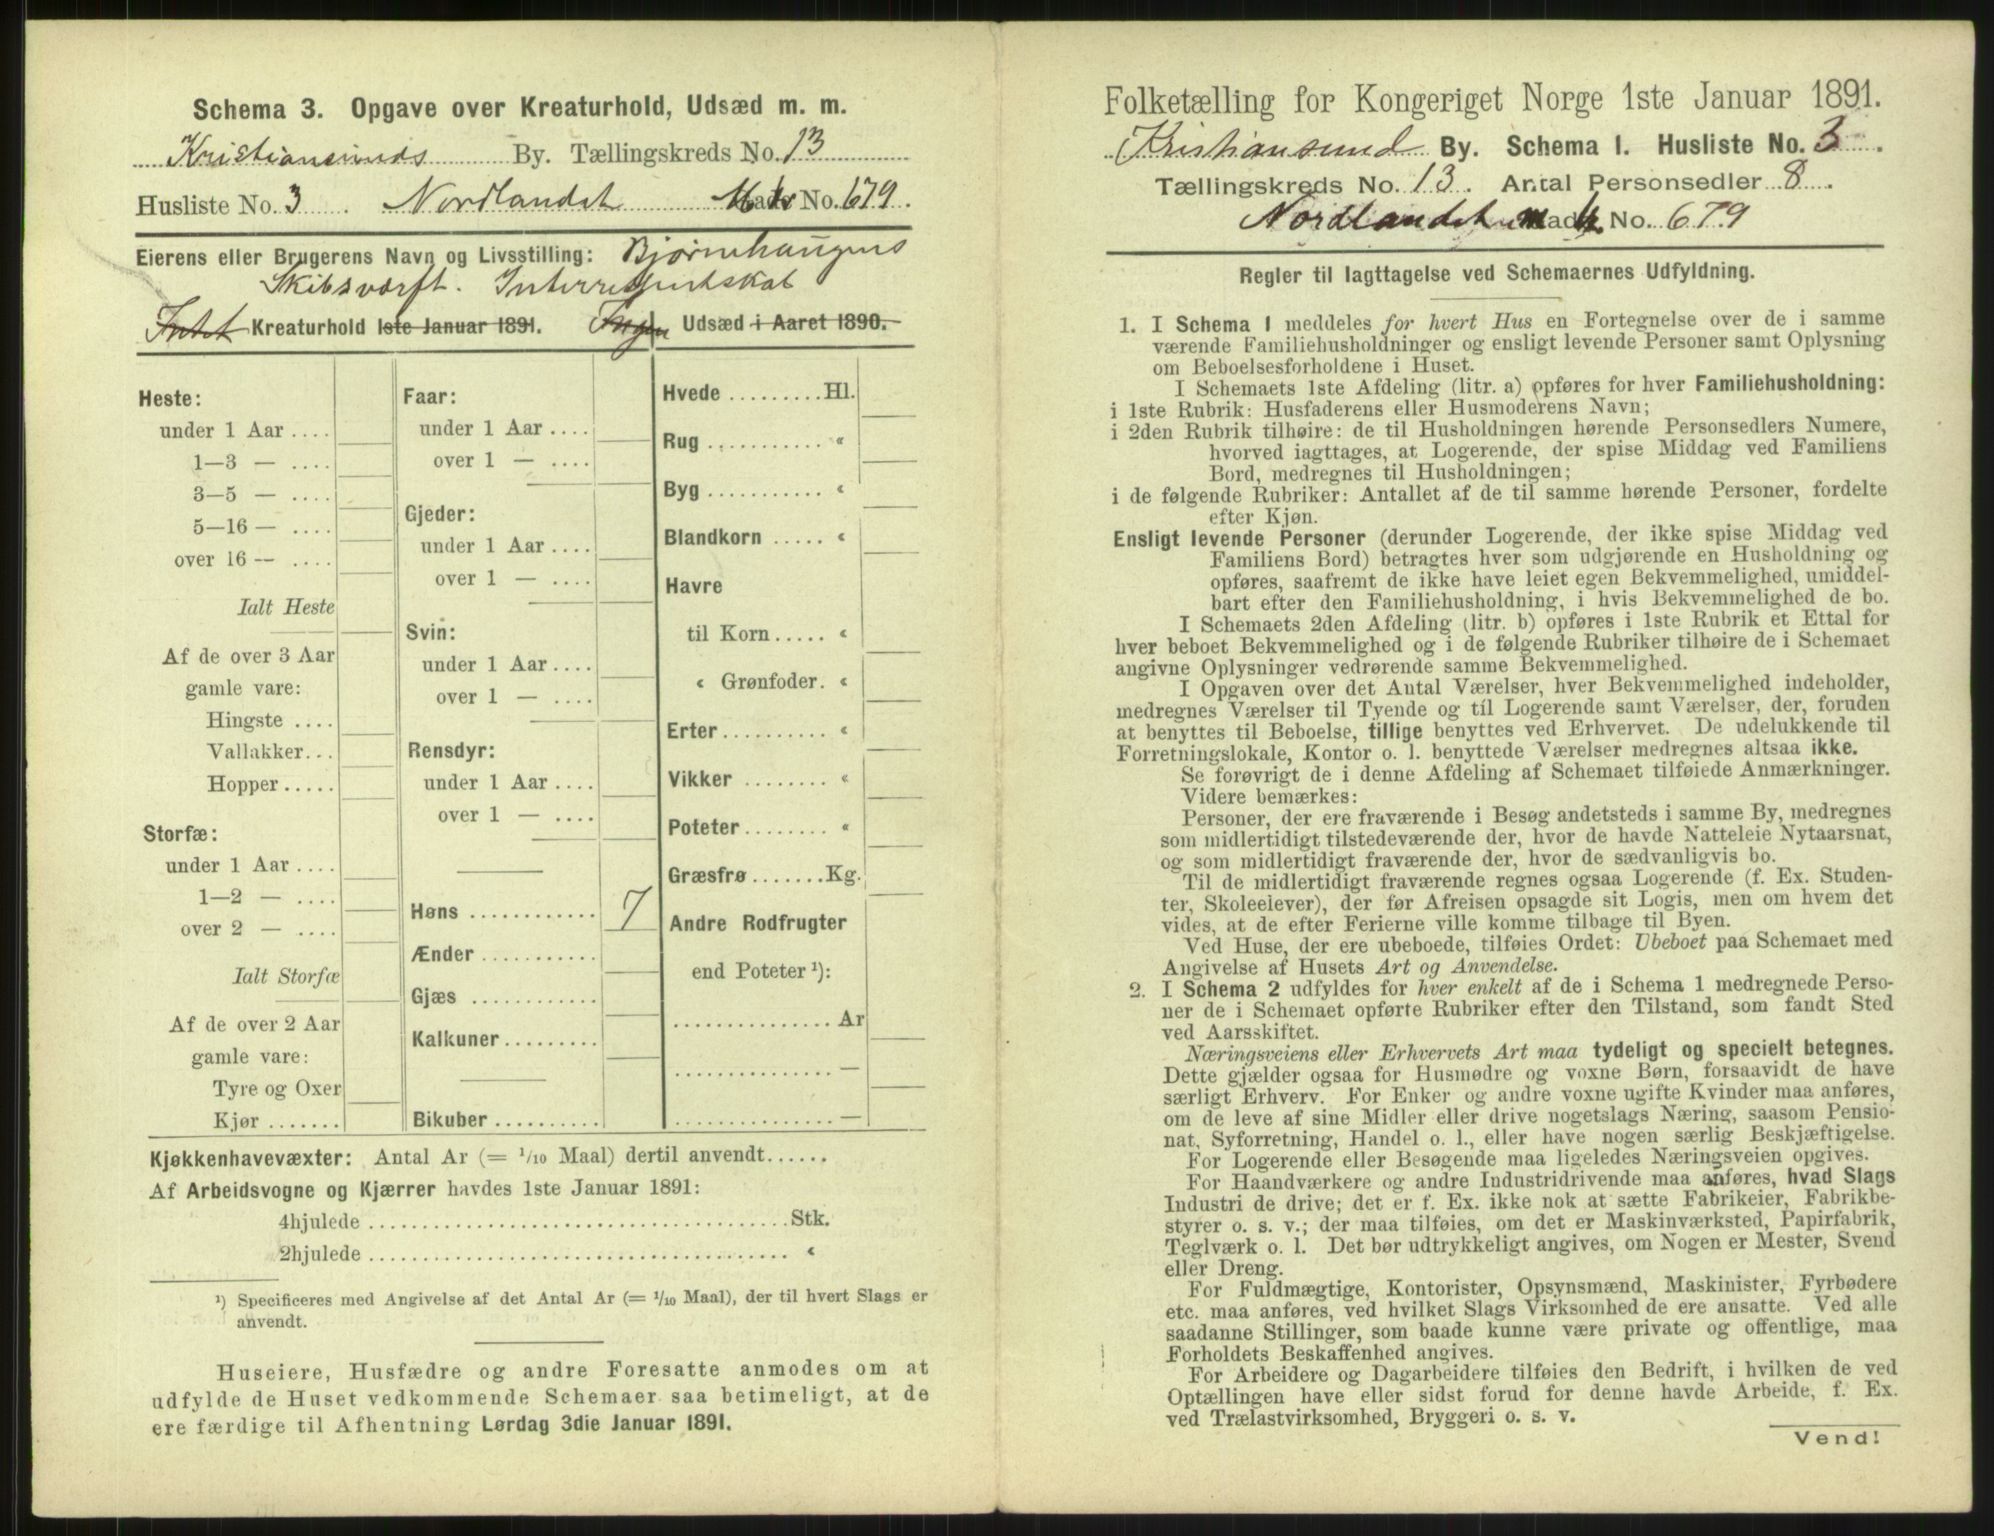 Schema 3. Opgave over Kreaturhold, Udsæd m. m.
Kristiansunds By. Tællingskreds No. 13
Husliste No. 3 Nordlandet No. 679.
Eierens eller Brugerens Navn og Livsstilling: Bjørnehaugens
Skibsværft. Interressentskab
Intet Kreaturhold 1ste Januar 1891. Ingen Udsæd i Aaret 1890.
Heste:
under 1 Aar ....
1—3 — ....
3—5 — ....
5—16 — ....
over 16 — ....
Ialt Heste
Af de over 3 Aar
gamle vare:
Hingste ....
Vallakker...
Hopper.....
Storfæ:
under 1 Aar ....
1—2 — ....
over 2 — ....
Ialt Storfæ
Af de over 2 Aar
gamle vare:
Tyre og Oxer
Kjør .......
Faar:
under 1 Aar ....
over 1 — ....
Gjeder:
under 1 Aar ....
over 1 — ....
Svin:
under 1 Aar ....
over 1 — ....
Rensdyr:
under 1 Aar ....
over 1 — ....
Høns ............ 7
Ænder ...........
Gjæs ............
Kalkuner.........
Bikuber..........
Hvede .........Hl.
Rug ........... «
Byg ........... «
Blandkorn ..... «
Havre
til Korn ..... «
« Grønfoder. «
Erter.......... «
Vikker ........ «
Poteter........ «
Græsfrø .......Kg.
Andre Rodfrugter
end Poteter ¹):
............... Ar
............... —
............... —
Kjøkkenhavevæxter: Antal Ar (= 1/10 Maal) dertil anvendt......
Af Arbeidsvogne og Kjærrer havdes 1ste Januar 1891:
4hjulede ........................................Stk.
2hjulede ........................................ «
¹) Specificeres med Angivelse af det Antal Ar (= 1/10 Maal), der til hvert Slags er
anvendt.
Huseiere, Husfædre og andre Foresatte anmodes om at
udfylde de Huset vedkommende Schemaer saa betimeligt, at de
ere færdige til Afhentning Lørdag 3die Januar 1891.
Folketælling for Kongeriget Norge 1ste Januar 1891.
Kristiansund By. Schema I. Husliste No. 3.
Tællingskreds No. 13. Antal Personsedler 8.
Nordlandet No. 679
Regler til Iagttagelse ved Schemaernes Udfyldning.
1. I Schema 1 meddeles for hvert Hus en Fortegnelse over de i samme
værende Familiehusholdninger og ensligt levende Personer samt Oplysning
om Beboelsesforholdene i Huset.
I Schemaets 1ste Afdeling (litr. a) opføres for hver Familiehusholdning:
i 1ste Rubrik: Husfaderens eller Husmoderens Navn;
i 2den Rubrik tilhøire: de til Husholdningen hørende Personsedlers Numere,
hvorved iagttages, at Logerende, der spise Middag ved Familiens
Bord, medregnes til Husholdningen;
i de følgende Rubriker: Antallet af de til samme hørende Personer, fordelte
efter Kjøn.
Ensligt levende Personer (derunder Logerende, der ikke spise Middag ved
Familiens Bord) betragtes hver som udgjørende en Husholdning og
opføres, saafremt de ikke have leiet egen Bekvemmelighed, umiddel-
bart efter den Familiehusholdning, i hvis Bekvemmelighed de bo.
I Schemaets 2den Afdeling (litr. b) opføres i 1ste Rubrik et Ettal for
hver beboet Bekvemmelighed og i de følgende Rubriker tilhøire de i Schemaet
angivne Oplysninger vedrørende samme Bekvemmelighed.
I Opgaven over det Antal Værelser, hver Bekvemmelighed indeholder,
medregnes Værelser til Tyende og til Logerende samt Værelser, der, foruden
at benyttes til Beboelse, tillige benyttes ved Erhvervet. De udelukkende til
Forretningslokale, Kontor o. l. benyttede Værelser medregnes altsaa ikke.
Se forøvrigt de i denne Afdeling af Schemaet tilføiede Anmærkninger.
Videre bemærkes:
Personer, der ere fraværende i Besøg andetsteds i samme By, medregnes
som midlertidigt tilstedeværende der, hvor de havde Natteleie Nytaarsnat,
og som midlertidigt fraværende der, hvor de sædvanligvis bo.
Til de midlertidigt fraværende regnes ogsaa Logerende (f. Ex. Studen-
ter, Skoleelever), der før Afreisen opsagde sit Logis, men om hvem det
vides, at de efter Ferierne ville komme tilbage til Byen.
Ved Huse, der ere ubeboede, tilføies Ordet: Ubeboet paa Schemaet med
Angivelse af Husets Art og Anvendelse.
2. I Schema 2 udfyldes for hver enkelt af de i Schema 1 medregnede Perso-
ner de i Schemaet opførte Rubriker efter den Tilstand, som fandt Sted
ved Aarsskiftet.
Næringsveiens eller Erhvervets Art maa tydeligt og specielt betegnes.
Dette gjælder ogsaa for Husmødre og voxne Børn, forsaavidt de have
særligt Erhverv. For Enker og andre voxne ugifte Kvinder maa anføres,
om de leve af sine Midler eller drive nogetslags Næring, saasom Pensio-
nat, Syforretning, Handel o. l., eller have nogen særlig Beskjæftigelse.
For Logerende eller Besøgende maa ligeledes Næringsveien opgives.
For Haandværkere og andre Industridrivende maa anføres, hvad Slags
Industri de drive; det er f. Ex. ikke nok at sætte Fabrikeier, Fabrikbe-
styrer o. s. v.; der maa tilføies, om det er Maskinværksted, Papirfabrik,
Teglværk o. l. Det bør udtrykkeligt angives, om Nogen er Mester, Svend
eller Dreng.
For Fuldmægtige, Kontorister, Opsynsmænd, Maskinister, Fyrbødere
etc. maa anføres, ved hvilket Slags Virksomhed de ere ansatte. Ved alle
saadanne Stillinger, som baade kunne være private og offentlige, maa
Forholdets Beskaffenhed angives.
For Arbeidere og Dagarbeidere tilføies den Bedrift, i hvilken de ved
Optællingen have eller sidst forud for denne havde Arbeide, f. Ex.
ved Trælastvirksomhed, Bryggeri o. s. v.
Vend!